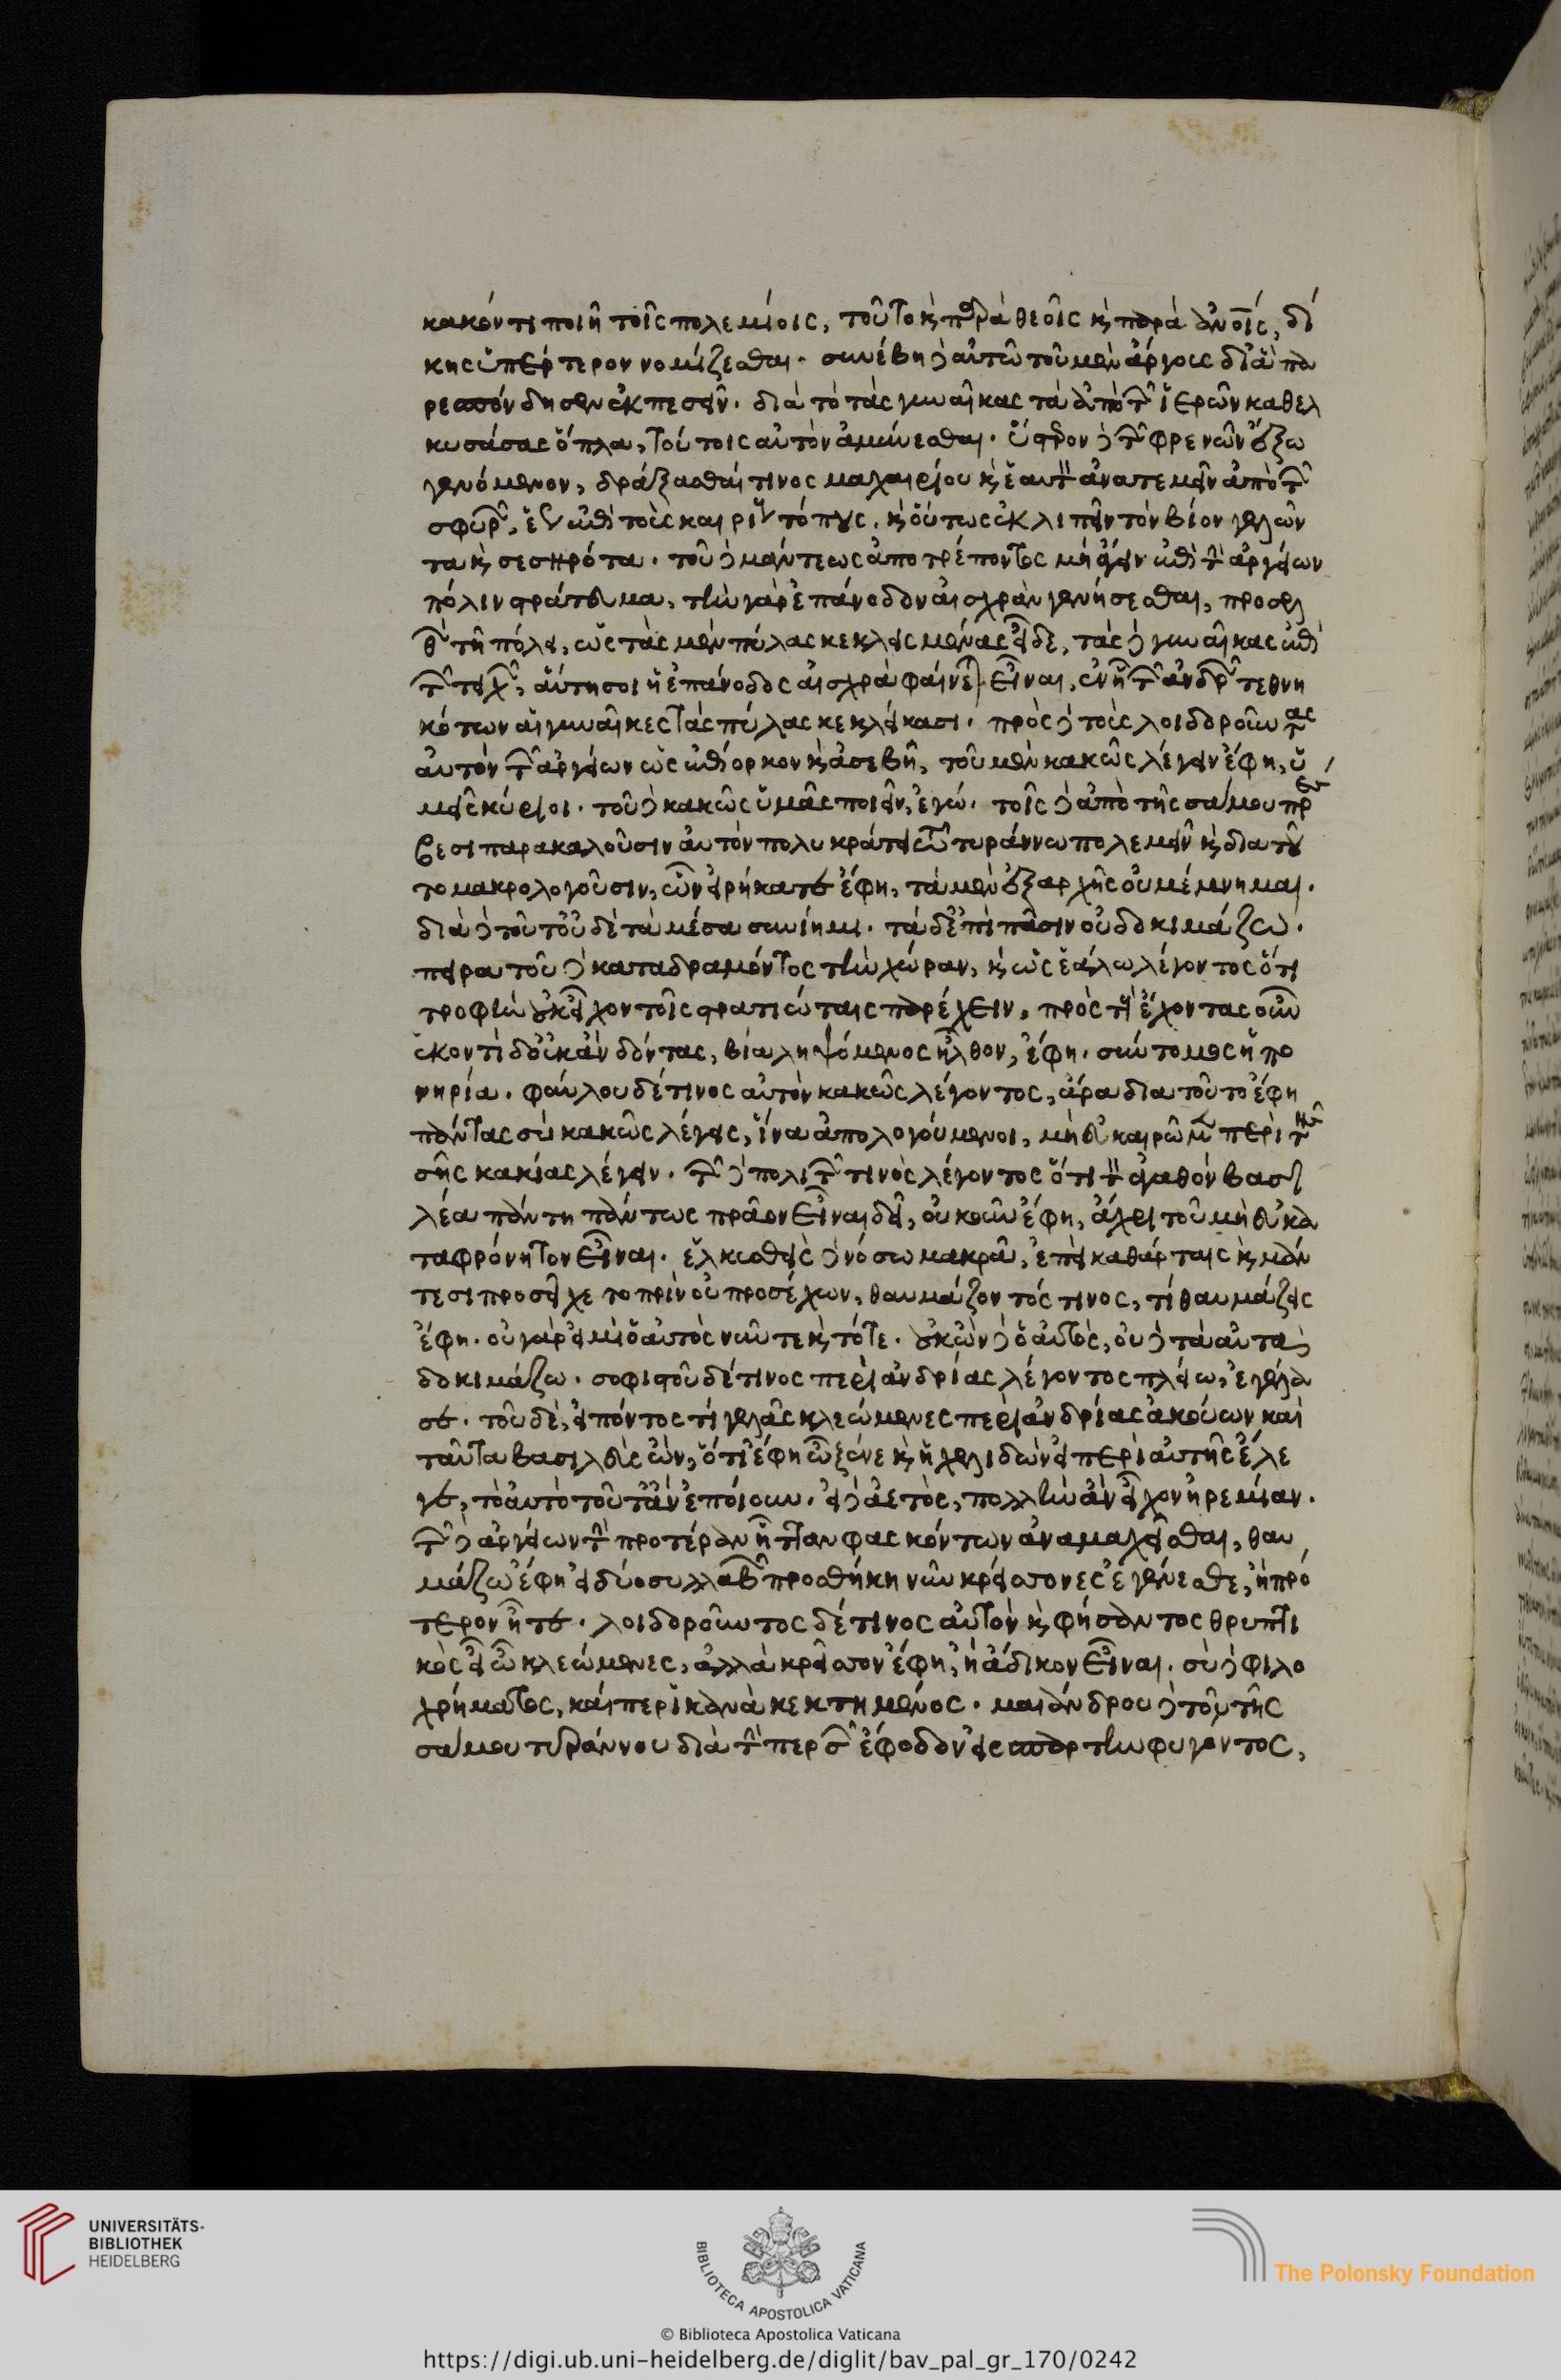 κακόν τι ποιῆ τοῖς πολεμίοις, τοῦτο κ παρὰ θεοῖς κ παρὰ ἀνοις, δί
κης ὑπέρτερον νομίζεσθαι. συνέβη δ αὐτῶ τοῦ μὲν ἄργους διὰ πα
ρασσόνδησεν ἐκπεσεῖν. διὰ τὸ τὰς γυναῖκας τὰ ἀπὸ τῶν ἱερῶν καθελ
κυσάσας ὅπλα, τούτοις αὐτὸν ἀμύνεσθαι. ὕστερον δὲ τῶν φρενῶν ἔξω
γενόμενον, δράξασθαί τινος μαχαιρίου κ ἑαυτὸν ἀνατεμεῖν ἀπὸ τῶν
σφυρῶν, ἕως ἐπὶ τοὺς καιρίους τόπους. κ οὕτως ἐκλιπεῖν τὸν βίον γελῶν
τα κ σεσηρότα. τοῦ δὲ μάντεως ἀποτρέποντος μὴ ἄγειν ἐπὶ τὴν ἀργείων
πόλιν στράτευμα, τὴν γὰρ ἐπάνοδον αἰσχρὰν γενήσεσθαι, προσελ
θὼν τῆ πόλει, ὡς τὰς μὲν πύλας κεκλεισμένας εἶδε, τὰς δὲ γυναῖκας ἐπὶ
τῶν τειχῶν, αὕτη σοι ἡ ἐπάνοδος αἰσχρὰ φαίνεται εἶναι, ἐν ἧ τῶν ἀνδρῶν τεθνη
κότων αἱ γυναῖκες τὰς πύλας κεκλείκασι. πρὸς δὲ τοὺς λοιδοροῦντας
αὐτὸν τῶν ἀργείων ὡς ἐπίορκον κ ἀσεβῆ, τοῦ μὲν κακῶς λέγειν ἔφη, ὑ
μεῖς κύριοι. τοῦ δὲ κακῶς ὑμᾶς ποιεῖν, ἐγώ. τοῖς δὲ ἀπὸ τῆς σάμου πρέσ
βεσι παρακαλοῦσιν αὐτὸν πολυκράτει τῶ τυράννω πολεμεῖν κ διὰ τοῦ
το μακρολογοῦσιν, ὧν εἰρήκατε ἔφη, τὰ μὲν ἐξαρχῆς οὐ μέμνημαι.
διὰ δὲ τοῦτ᾽ οὐδὲ τὰ μέσα συνίημι. τὰ δ᾽ ἐπὶ πᾶσιν οὐ δοκιμάζω.
πειρατοῦ δὲ καταδραμόντος τὴν χώραν, κ ὡς ἑάλω λέγοντος ὅτι
τροφὴν οὐκ εἶχον τοῖς στρατιώταις παρέχειν, πρὸς τοὺς ἔχοντας οὖν
ἑκοντὶ δ᾽ οὐκ ἂν δόντας, βία ληψόμενος ἦλθον, ἔφη. σύντομος ἡ πο
νηρία. φαύλου δέ τινος αὐτὸν κακῶς λέγοντος, ἆρα διὰ τοῦτο ἔφη
πάντας σὺ κακῶς λέγεις, ἵνα ἀπολογούμενοι, μὴ εὐκαιρῶμεν περὶ τῆς
σῆς κακίας λέγειν. τῶν δὲ πολιτῶν τινὸς λέγοντος ὅτι τὸν ἀγαθὸν βασι
λέα πάντη πάντως πρᾶον εἶναι δεῖ, οὐκοῦν ἔφη, ἄχρι τοῦ μὴ εὐκα
ταφρόνητον εἶναι. ἑλκυσθεὶς δὲ νόσω μακρᾶ, ἐπεὶ καθάρταις κ μάν
τεσι προσεῖχε τὸ πρὶν οὐ προσέχων, θαυμάζοντός τινος, τί θαυμάζεις
ἔφη. οὐ γάρ εἰμι ὁ αὐτὸς νῦν τε κ τότε. οὐκ ὢν δὲ ὁ αὐτὸς, οὐδὲ τὰ αὐτὰ
δοκιμάζω. σοφιστοῦ δέ τινος περὶ ἀνδρίας λέγοντος πλείω, ἐγέλα
σε. τοῦ δὲ, εἰπόντος τί γελᾶς κλεώμενες περὶ ἀνδρίας ἀκούων καὶ
ταῦτα βασιλεὺς ὤν, ὅτι ἔφη ὦ ξένε κ ἡ χελιδὼν εἰ περὶ αὐτῆς ἔλε
γε, τὸ αὐτὸ τοῦτ᾽ ἂν ἐποίουν. εἰ δὲ ἀετὸς, πολλὴν ἂν εἶχον ἠρεμίαν.
τῶν δὲ ἀργείων τὴν προτέραν ἧτταν φασκόντων ἀναμαχεῖσθαι, θαυ
μάζω ἔφη εἰ δύο συλλαβῶν προσθήκη νῦν κρείσσονες ἐγένεσθε, ἢ πρό
τερον ἦτε. λοιδοροῦντος δέ τινος αὐτὸν κ φήσαντος θρυπτι
κὸς εἶ ὦ κλεώμενες, ἀλλὰ κρεῖσσον ἔφη, ἢ ἄδικον εἶναι. σὺ δὲ φιλο
χρήματος, καίπερ ἱκανὰ κεκτημένος. μαιάνδρου δὲ τοῦ τῆς
σάμου τυράννου διὰ τὴν περσῶν ἔφοδον εἰς σπάρτην φυγόντος,
UNIVERSITÄTS-
BIBLIOTHEK
HEIDELBERG
BIBLIOTECA APOSTOLICA VATICANA
The Polonsky Foundation
© Biblioteca Apostolica Vaticana
https://digi.ub.uni-heidelberg.de/diglit/bav_pal_gr_170/0242